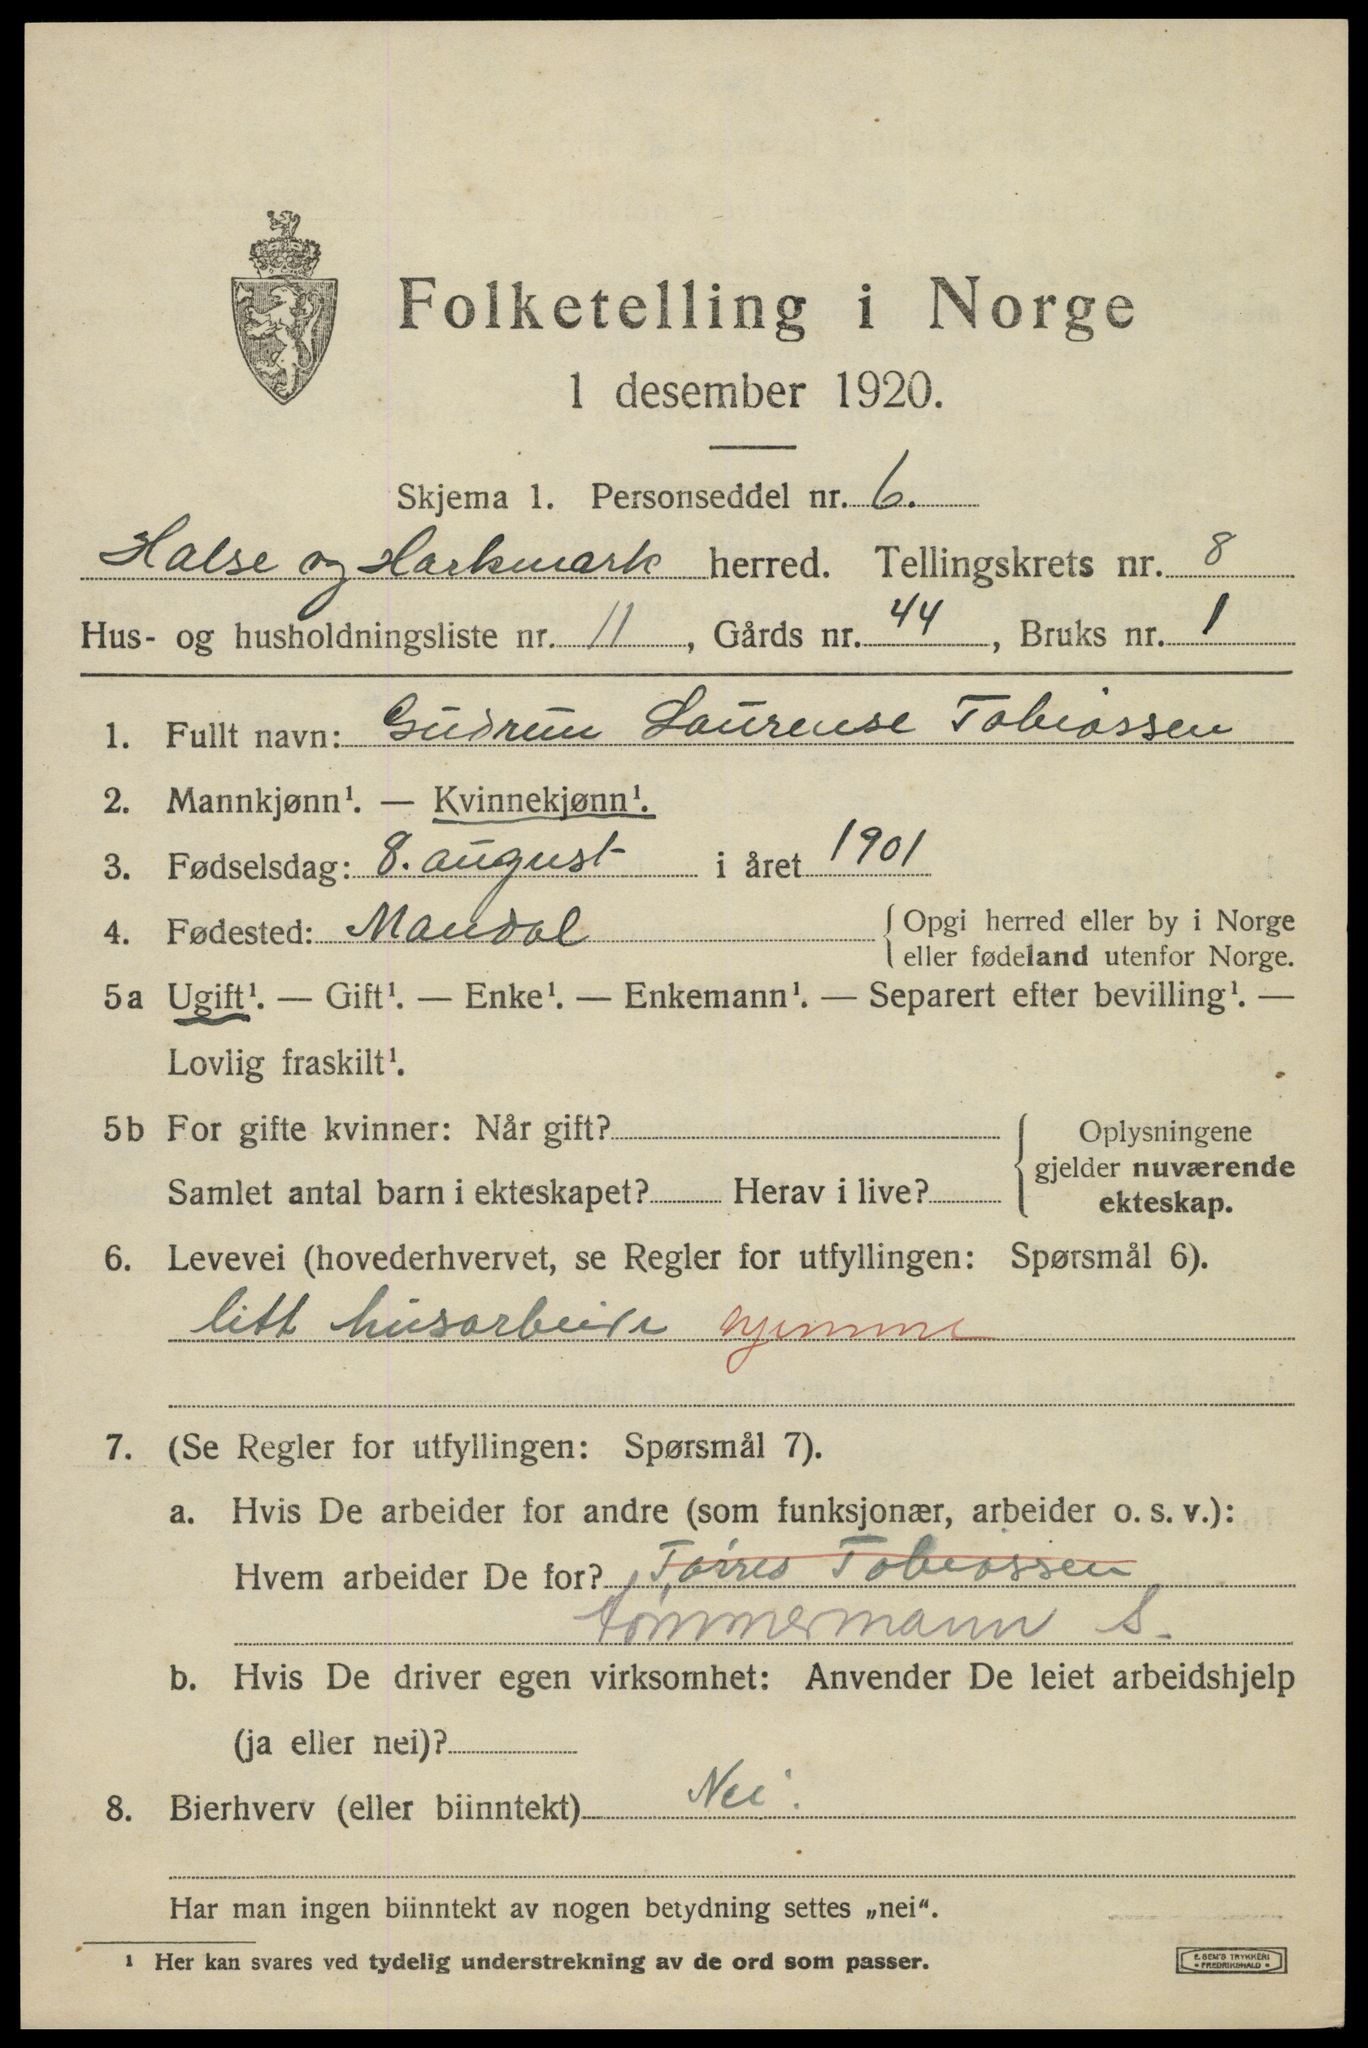 Folketelling i Norge
1 desember 1920.
Skjema 1. Personseddel nr. 6.
Halse og Harkmark herred. Tellingskrets nr. 8
Hus- og husholdningsliste nr. 11, Gårds nr. 44, Bruks nr. 1
1. Fullt navn: Gudrun Laurense Tobiassen
2. Mannkjønn¹. — Kvinnekjønn¹.
3. Fødselsdag: 8. august i året 1901
4. Fødested: Mandal { Opgi herred eller by i Norge
eller fødeland utenfor Norge.
5a Ugift¹. — Gift¹. — Enke¹. — Enkemann¹. — Separert efter bevilling¹. —
Lovlig fraskilt¹.
5b For gifte kvinner: Når gift?
Samlet antal barn i ekteskapet? Herav i live?
Oplysningene
gjelder nuværende
ekteskap.
6. Levevei (hovederhvervet, se Regler for utfyllingen: Spørsmål 6).
litt husarbeide hjemme
7. (Se Regler for utfyllingen: Spørsmål 7).
a. Hvis De arbeider for andre (som funksjonær, arbeider o. s. v.):
Hvem arbeider De for? Tobiassen
tømmermann S.
b. Hvis De driver egen virksomhet: Anvender De leiet arbeidshjelp
(ja eller nei)?
8. Bierhverv (eller biinntekt) Nei.
Har man ingen biinntekt av nogen betydning settes „nei“.
¹ Her kan svares ved tydelig understrekning av de ord som passer.
E. SEM'S TRYKKERI
• FREDRIKSHALD •